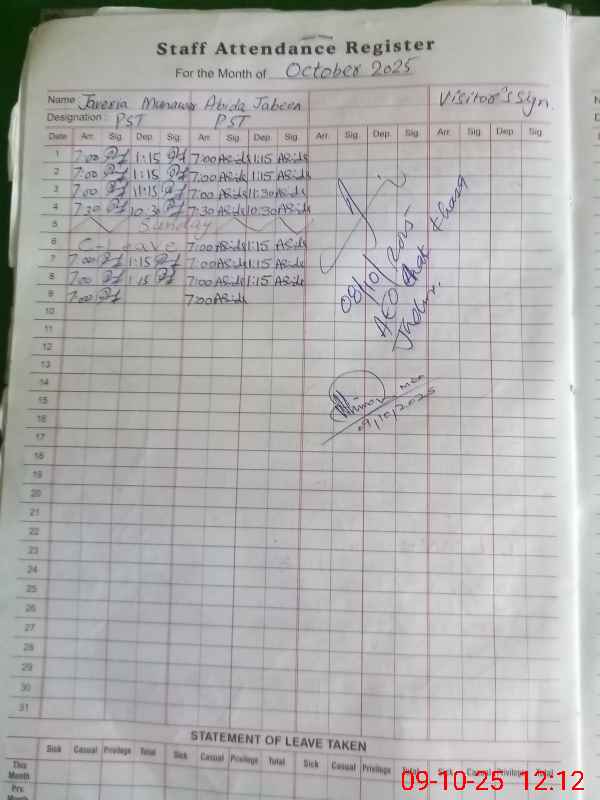 Staff Attendance Register
For the Month of October 2025
Name Javeria Munawar Abida Jabeen Visitor's Sign.
Designation: PST PST
Date Arr. Sig. Dep. Sig. Arr. Sig. Dep. Sig. Arr. Sig. Dep. Sig. Arr. Sig. Dep. Sig.
1 7:00 1:15 7:00 Abida 1:15 Abida
2 7:00 1:15 7:00 Abida 1:15 Abida
3 7:00 11:15 7:00 Abida 11:30 Abida
4 7:30 10:30 7:30 Abida 10:30 Abida
5 Sunday
6 C-Leave 7:00 Abida 1:15 Abida
7 7:00 1:15 7:00 Abida 1:15 Abida
8 7:00 1:15 7:00 Abida 1:15 Abida
9 7:00 7:00 Abida
10
11
12
13
14
15
16
17
18
19
20
21
22
23
24
25
26
27
28
29
30
31
08/10/2025
AEO
MEA
09/10/2025
STATEMENT OF LEAVE TAKEN
Sick Casual Privilege Total Sick Casual Privilege Total Sick Casual Privilege Total Sick Casual Privilege Total
This Month
Prv. Month
09-10-25 12.12